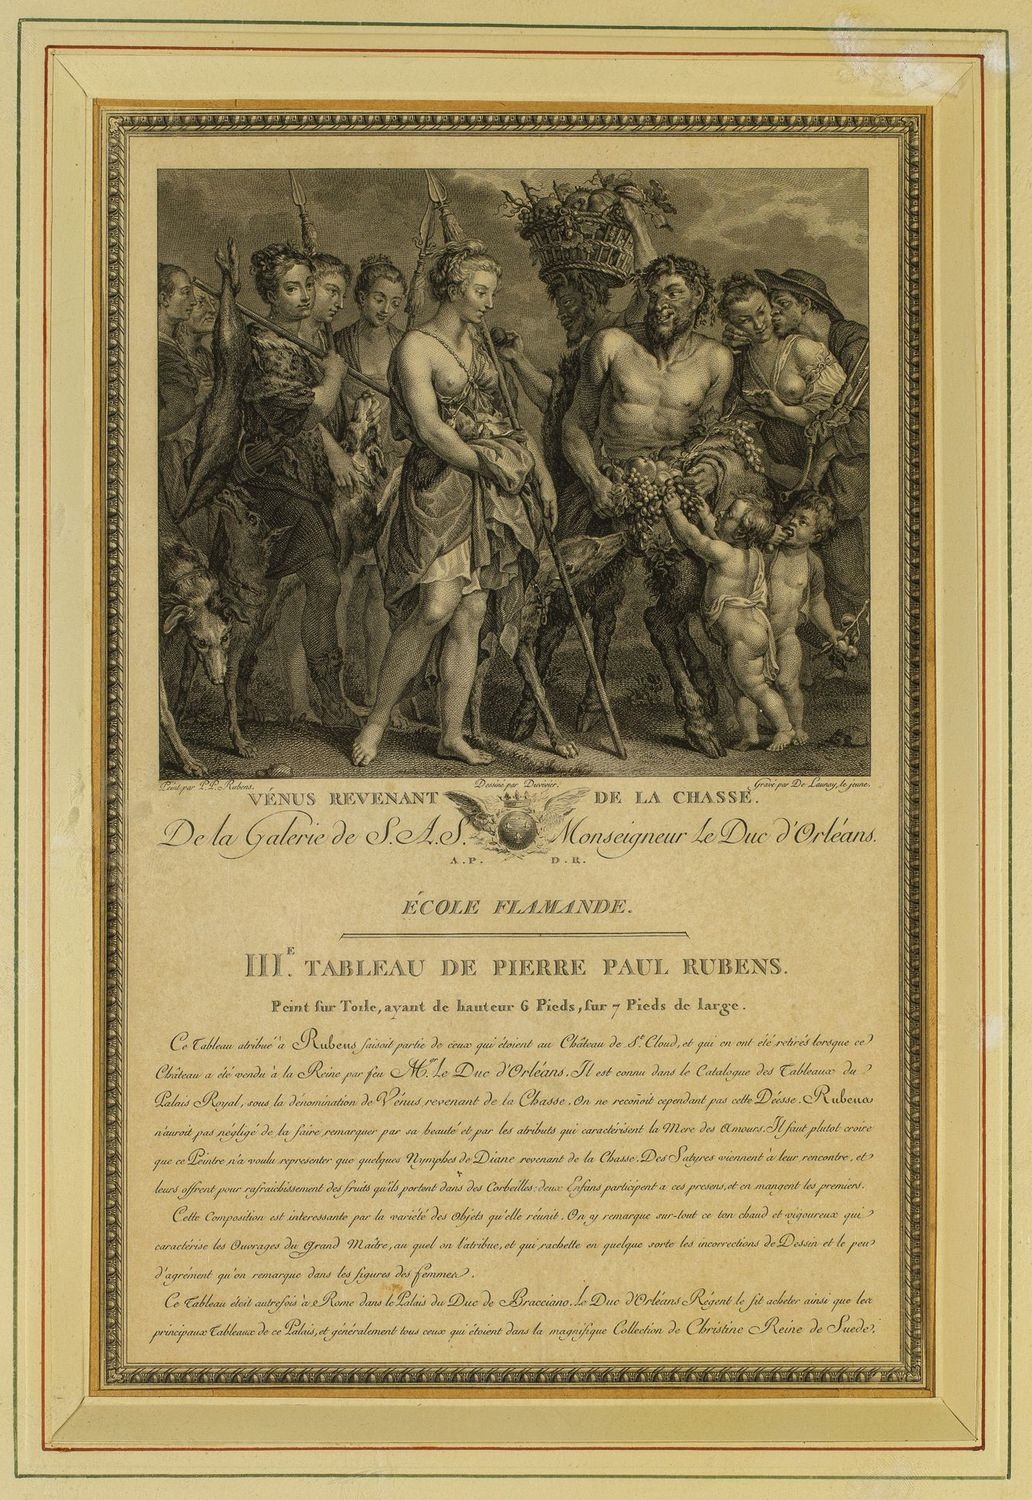 Peint par P. P. Rubens. Dessiné par Duvivier. Gravé par De Launay, le jeune.
VÉNUS REVENANT DE LA CHASSE.
De la Galerie de S. A. S. Monseigneur Le Duc d'Orléans.
A. P. D. R.
ÉCOLE FLAMANDE.
III.E TABLEAU DE PIERRE PAUL RUBENS.
Peint sur Toile, ayant de hauteur 6 Pieds, sur 7 Pieds de large.
Ce Tableau atribué à Rubens faisoit partie de ceux qui étoient au Château de St. Cloud, et qui en ont été retirés lorsque ce
Château a été vendu à la Reine par feu M.gr Le Duc d'Orléans. Il est connu dans le Catalogue des Tableaux du
Palais Royal, sous la dénomination de Vénus revenant de la Chasse. On ne reconoit cependant pas cette Déesse. Rubens
n'auroit pas négligé de la faire remarquer par sa beauté et par les atributs qui caractérisent la Mere des Amours. Il faut plutot croire
que ce Peintre n'a voulu representer que quelques Nymphes de Diane revenant de la Chasse. Des Satyres viennent à leur rencontre, et
leurs offrent pour rafraichissement des fruits qu'ils portent dans des Corbeilles: deux Enfans participent a ces presens, et en mangent les premiers.
Cette Composition est interessante par la varieté des objets qu'elle réunit. On y remarque sur-tout ce ton chaud et vigoureux qui
caractérise les Ouvrages du Grand Maître, au quel on l'atribue, et qui rachette en quelque sorte les incorrections de Dessin et le peu
d'agrément qu'on remarque dans les figures des femmes.
Ce Tableau étoit autrefois à Rome dans le Palais du Duc de Bracciano. Le Duc d'Orléans Régent le fit acheter ainsi que les
principaux Tableaux de ce Palais, et généralement tous ceux qui étoient dans la magnifique Collection de Christine Reine de Suede.